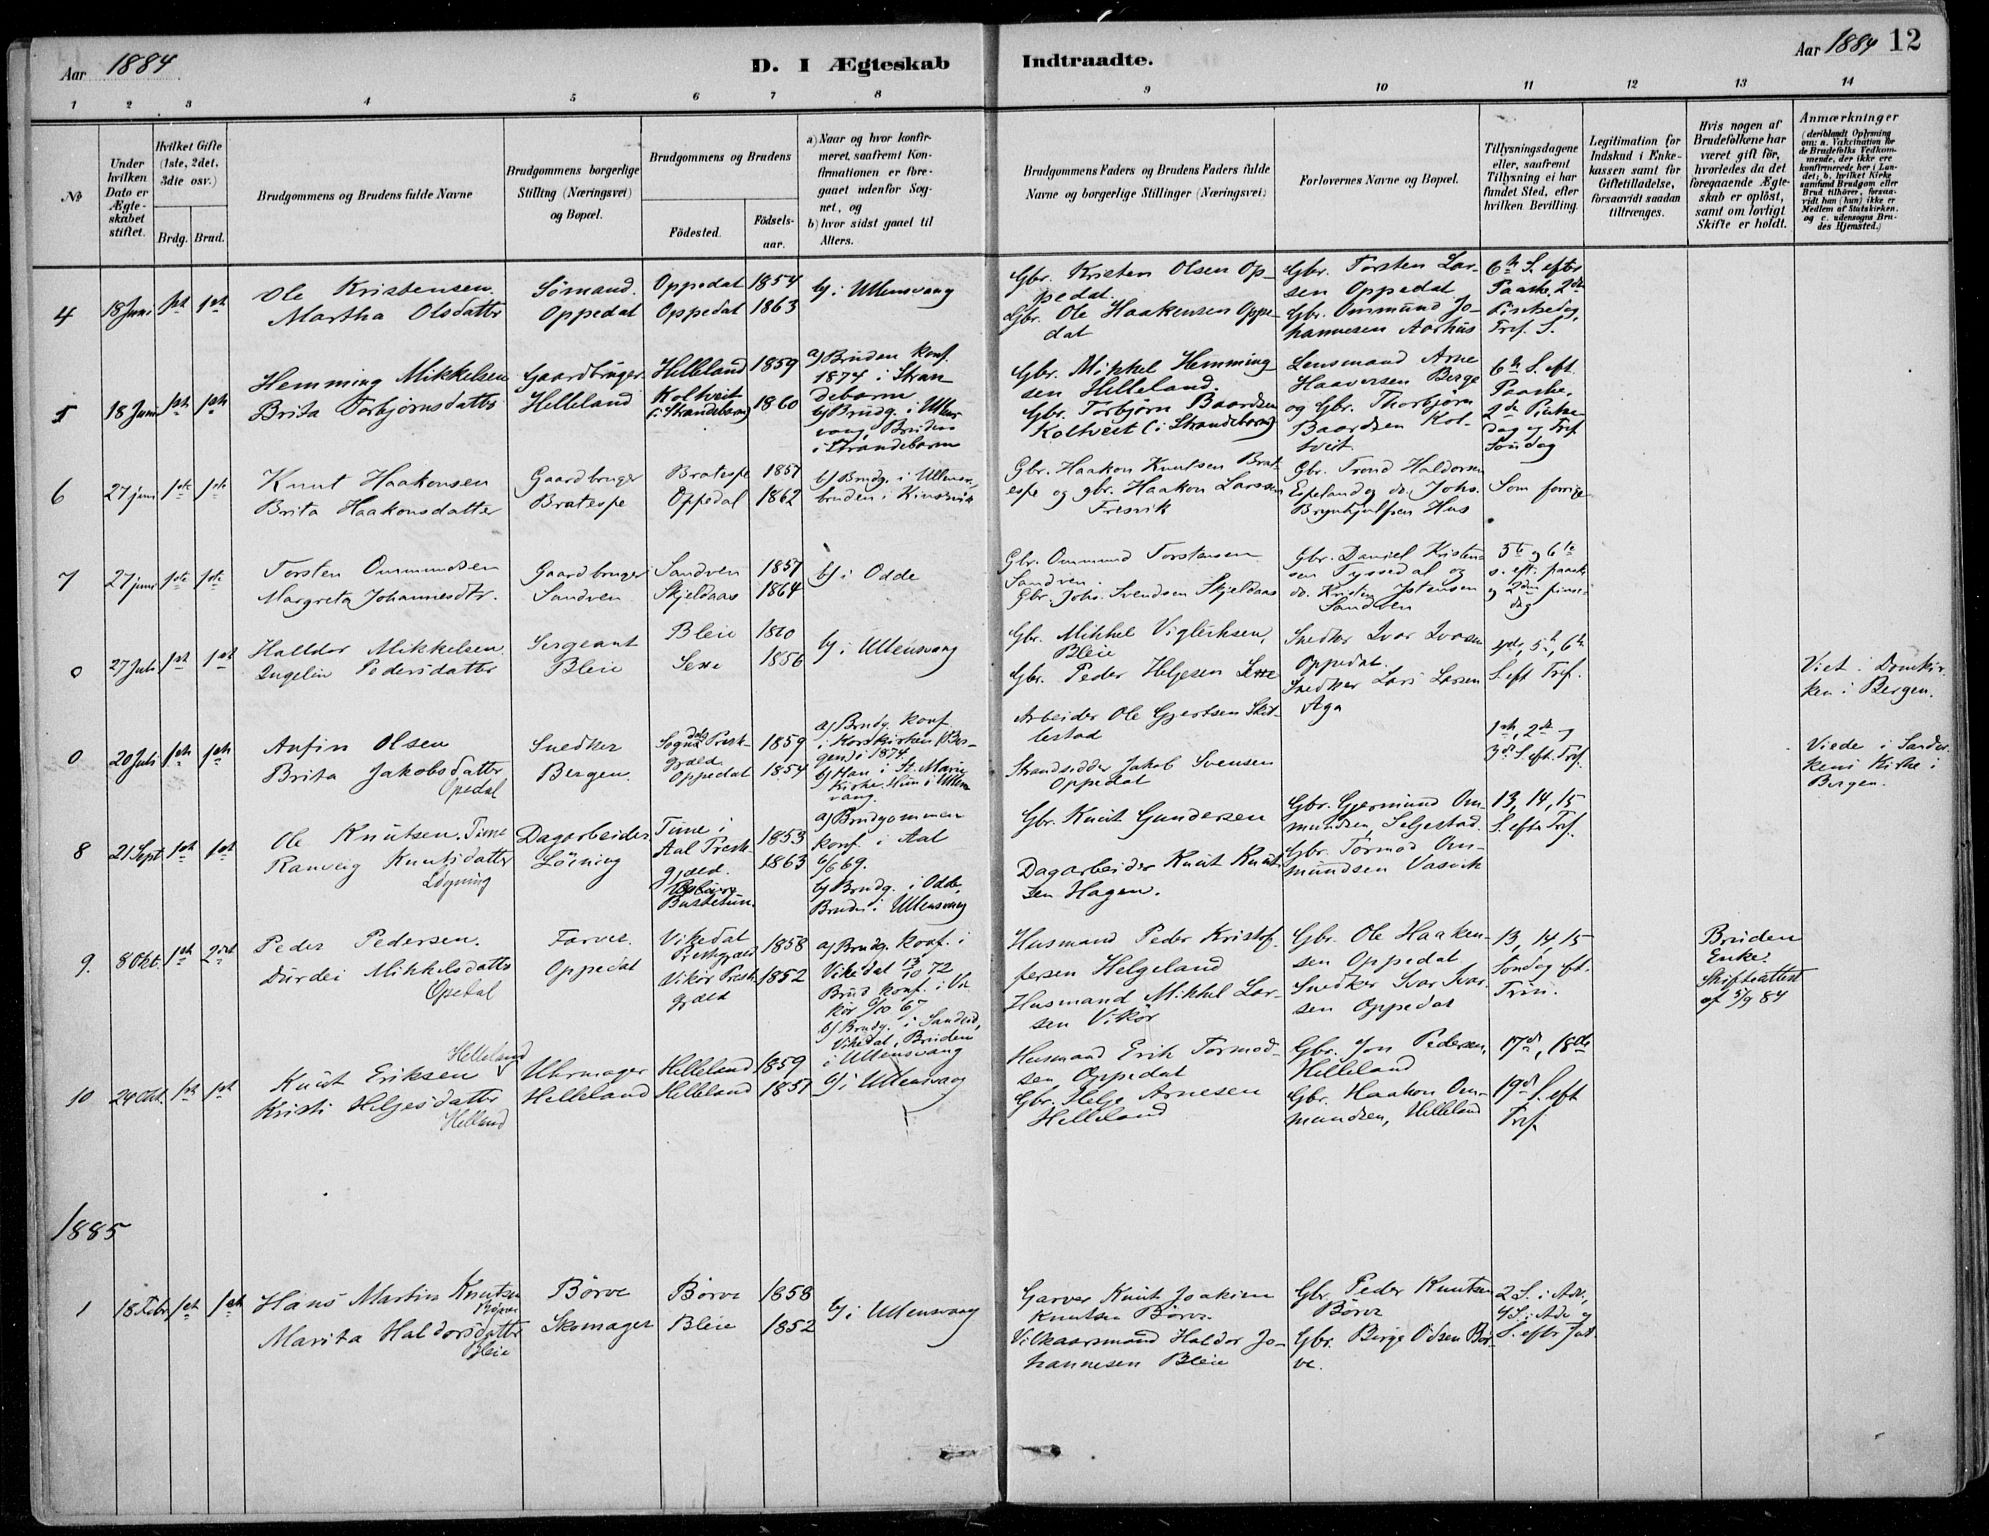 Aar 1884
D. I Ægteskab
Indtraadte.
Aar 1884 12
1 2 3 4 5 6 7 8 9 10 11 12 13 14
№
Under hvilken Dato er Ægte-skabet stiftet.
Hvilket Gifte (1ste, 2det, 3die osv.)
Brdg. Brud.
Brudgommens og Brudens fulde Navne
Brudgommens borgerlige Stilling (Næringsvei) og Bopæl.
Brudgommens og Brudens
Födested.
Födsels-aar.
a) Naar og hvor konfir-meret, saafremt Kon-firmationen er fore-gaaet udenfor Sog-net, og
b) hvor sidst gaaet til Alters.
Brudgommens Faders og Brudens Faders fulde Navne og borgerlige Stillinger (Næringsvei)
Forlovernes Navne og Bopæl.
Tillysningsdagene eller, saafremt Tillysning ei har fundet Sted, efter hvilken Bevilling.
Legitimation for Indskud i Enke-kassen samt for Giftetilladelse, forsaavidt saadan tiltrænges.
Hvis nogen af Brudefolkene har været gift för, hvorledes da det foregaaende Ægte-skab er oplöst, samt om lovligt Skifte er holdt.
Anmærkninger
(deriblandt Oplysning om: a. Vakcination for de Brudefolks Vedkom-mende, der ikke ere konfirmerede her i Lan-det; b. hvilket Kirke-samfund Brudgom eller Brud tilhörer, forsaa-vidt han (hun) ikke er Medlem af Statskirken, og c. udensogns Bru-des Hjemsted.)
4 18 Juni 1ste 1ste
Ole Kristensen.
Martha Olsdatter
Sömand.
Oppedal
Oppedal 1854
Oppedal 1863
b) i Ullensvang
Gbr. Kristen Olsen Op-
pedal.
Gbr. Ole Haakensen Oppe-
dal
Gbr. Torsten Lar-
sen Oppedal
Gbr. Ommund Jo-
hannesen Aarhus
6te S. efter
Paaske, 2den
Pinsedag,
Tref. S.
5 18 Juni 1ste 1ste
Hemming Mikkelsen
Brita Torbjörnsdatter
Gaardbruger
Helleland
Helleland 1859
Koltveit
(i Strandebarm) 1860
a) Bruden konf.
1874 i Stran
debarm
b) Brudg. i Ullens
vang, Bruden
i Strandebarm
Gbr. Mikkel Hemming
sen Helleland.
Gbr. Torbjörn Baardsen
Koltveit (i Strandebarm)
Lensmand Arne
Haaversen Berge
og Gbr. Thorbjörn
Baardsen Kol-
tveit.
6te S. eft.
Paaske,
2den Pinse-
dag og Tref.
Söndag
6 27 juni 1ste 1ste
Knut Haakonsen
Brita Haakonsdatter
Gaardbruger
Bratespe
Bratespe 1857
Oppedal 1862
b) Brudg. i Ullensv.
bruden i Kinservik
Gbr. Haakon Knutsen Brat-
espe og gbr. Haakon Larssen
Fresvik
Gbr. Trond Haldorsen
Espeland og do. Johs.
Brynhjulfsen Hus
Som forrige
7 27 juni 1ste 1ste
Torsten Ommundsen
Margreta Johannesdtr.
Gaardbruger
Sandven
Sandven 1857
Skjeldaas 1864
b) i Odde
Gbr. Ommund Torstensen
Sandven.
Gbr. Johs. Svendsen Skjeldaas
Gbr. Daniel Kristen-
sen Tyssedal og
do. Kristen Jstensen
Sandven
5te og 6te
s. eft. paask
og 2den pinse-
dag
0 27 Juli 1ste 1ste
Haldor Mikkelsen.
Ingelin Pedersdatter
Sergeant
Bleie
Bleie 1860
Sexe 1856
b) i Ullensvang
Gbr. Mikkel Vigleiksen,
Bleie
Gbr. Peder Heljesen Sexe
Snedker Ivar Ivarsen
Oppedal.
Snedker Lars Larsen
Aga
4de, 5te, 6te
S. eft Tref.
Viet i Domkir-
ken i Bergen.
0 20 Juli 1ste 1ste
Anfin Olsen
Brita Jakobsdatter
Opedal
Snedker
Bergen.
Sogndals Prest-
gjæld 1859
Oppedal 1854
a) Brudg. konf.
i Korskirken (Ber-
gen) i 1874.
b) Han i St. Marie
Kirke. Hun i Ullens
vang.
Arbeider Ole Gjertsen Skit-
lestad
Strandsidder Jakob Svensen
Oppedal
1ste, 2den og
3die S. eft. Tref.
Viede i Sandvi-
kens Kirke i
Bergen.
8 21 Sept 1ste 1ste
Ole Knutsen Time
Ranveig Knutsdatter
Lögning
Dagarbeider
Löining
Time i
Aal Prest-
gjæld. 1853
Busletun. 1863
a) Brudgommen
konf i Aal
6/6 69.
b) Brudg. i Odde,
Bruden i Ullensvang
Gbr. Knut Gundersen
Dagarbeider Knut Knut-
sen Hagen.
Gbr. Gjermund Om-
mundsen, Seljestad.
Gbr. Tormod Om-
mundsen Vasvik
13, 14, 15
S. efter Tref.
9. 8 Okt. 1ste 2det
Peder Pedersen.
Durdei Mikkelsdatter
Opedal
Farver.
Oppedal
Vikedal
Prestegjæld 1858
Vikör Prest-
gjæld 1852
a) Brudg. konf. i
Vikedal 13/10 72
Brud konf. i Vi
kör 6/10 67
b) Brudg. i Sandeid,
Vikedal, Bruden
i Ullensvang
Husmand Peder Kristof
fersen Helgeland
Husmand Mikkel Lar-
sen Vikör
Gbr. Ole Haaken-
sen Oppedal
Snedker Ivar Ivar-
sen Oppedal
13, 14, 15
Söndag eft.
Trin.
Bruden
Enke.
Skifteattest
af 5/9 84
10 24 Okt. 1ste 1ste
Knut Eriksen Helleland
Kristi Heljesdatter
Helland
Uhrmager
Helleland
Helleland 1859
Helleland 1857
b) i Ullensvang
Husmand Erik Tormod-
sen Oppedal
Gbr. Helje Arnesen
Helleland
Gbr. Jon Pedersen,
Helleland
Gbr. Haakon Om-
mundsen, Helleland
17de, 18de
19de S. eft
Tref.
1885
1 18 Febr 1ste 1ste
Hans Martin Knutsen
Börve
Marita Haldorsdatter
Bleie
Börve
Skomager
Börve 1858
Bleie 1852
b) i Ullensvang
Garver Knut Joakim
Knutsen Börve.
Vilkaarsmand Haldor Jo-
hannesen Bleie
Gbr. Peder Knutsen
Börve
Gbr. Birge Odsen Bör-
ve.
2 S. i Adv.,
4 S. i Adv og
S. efter Jul